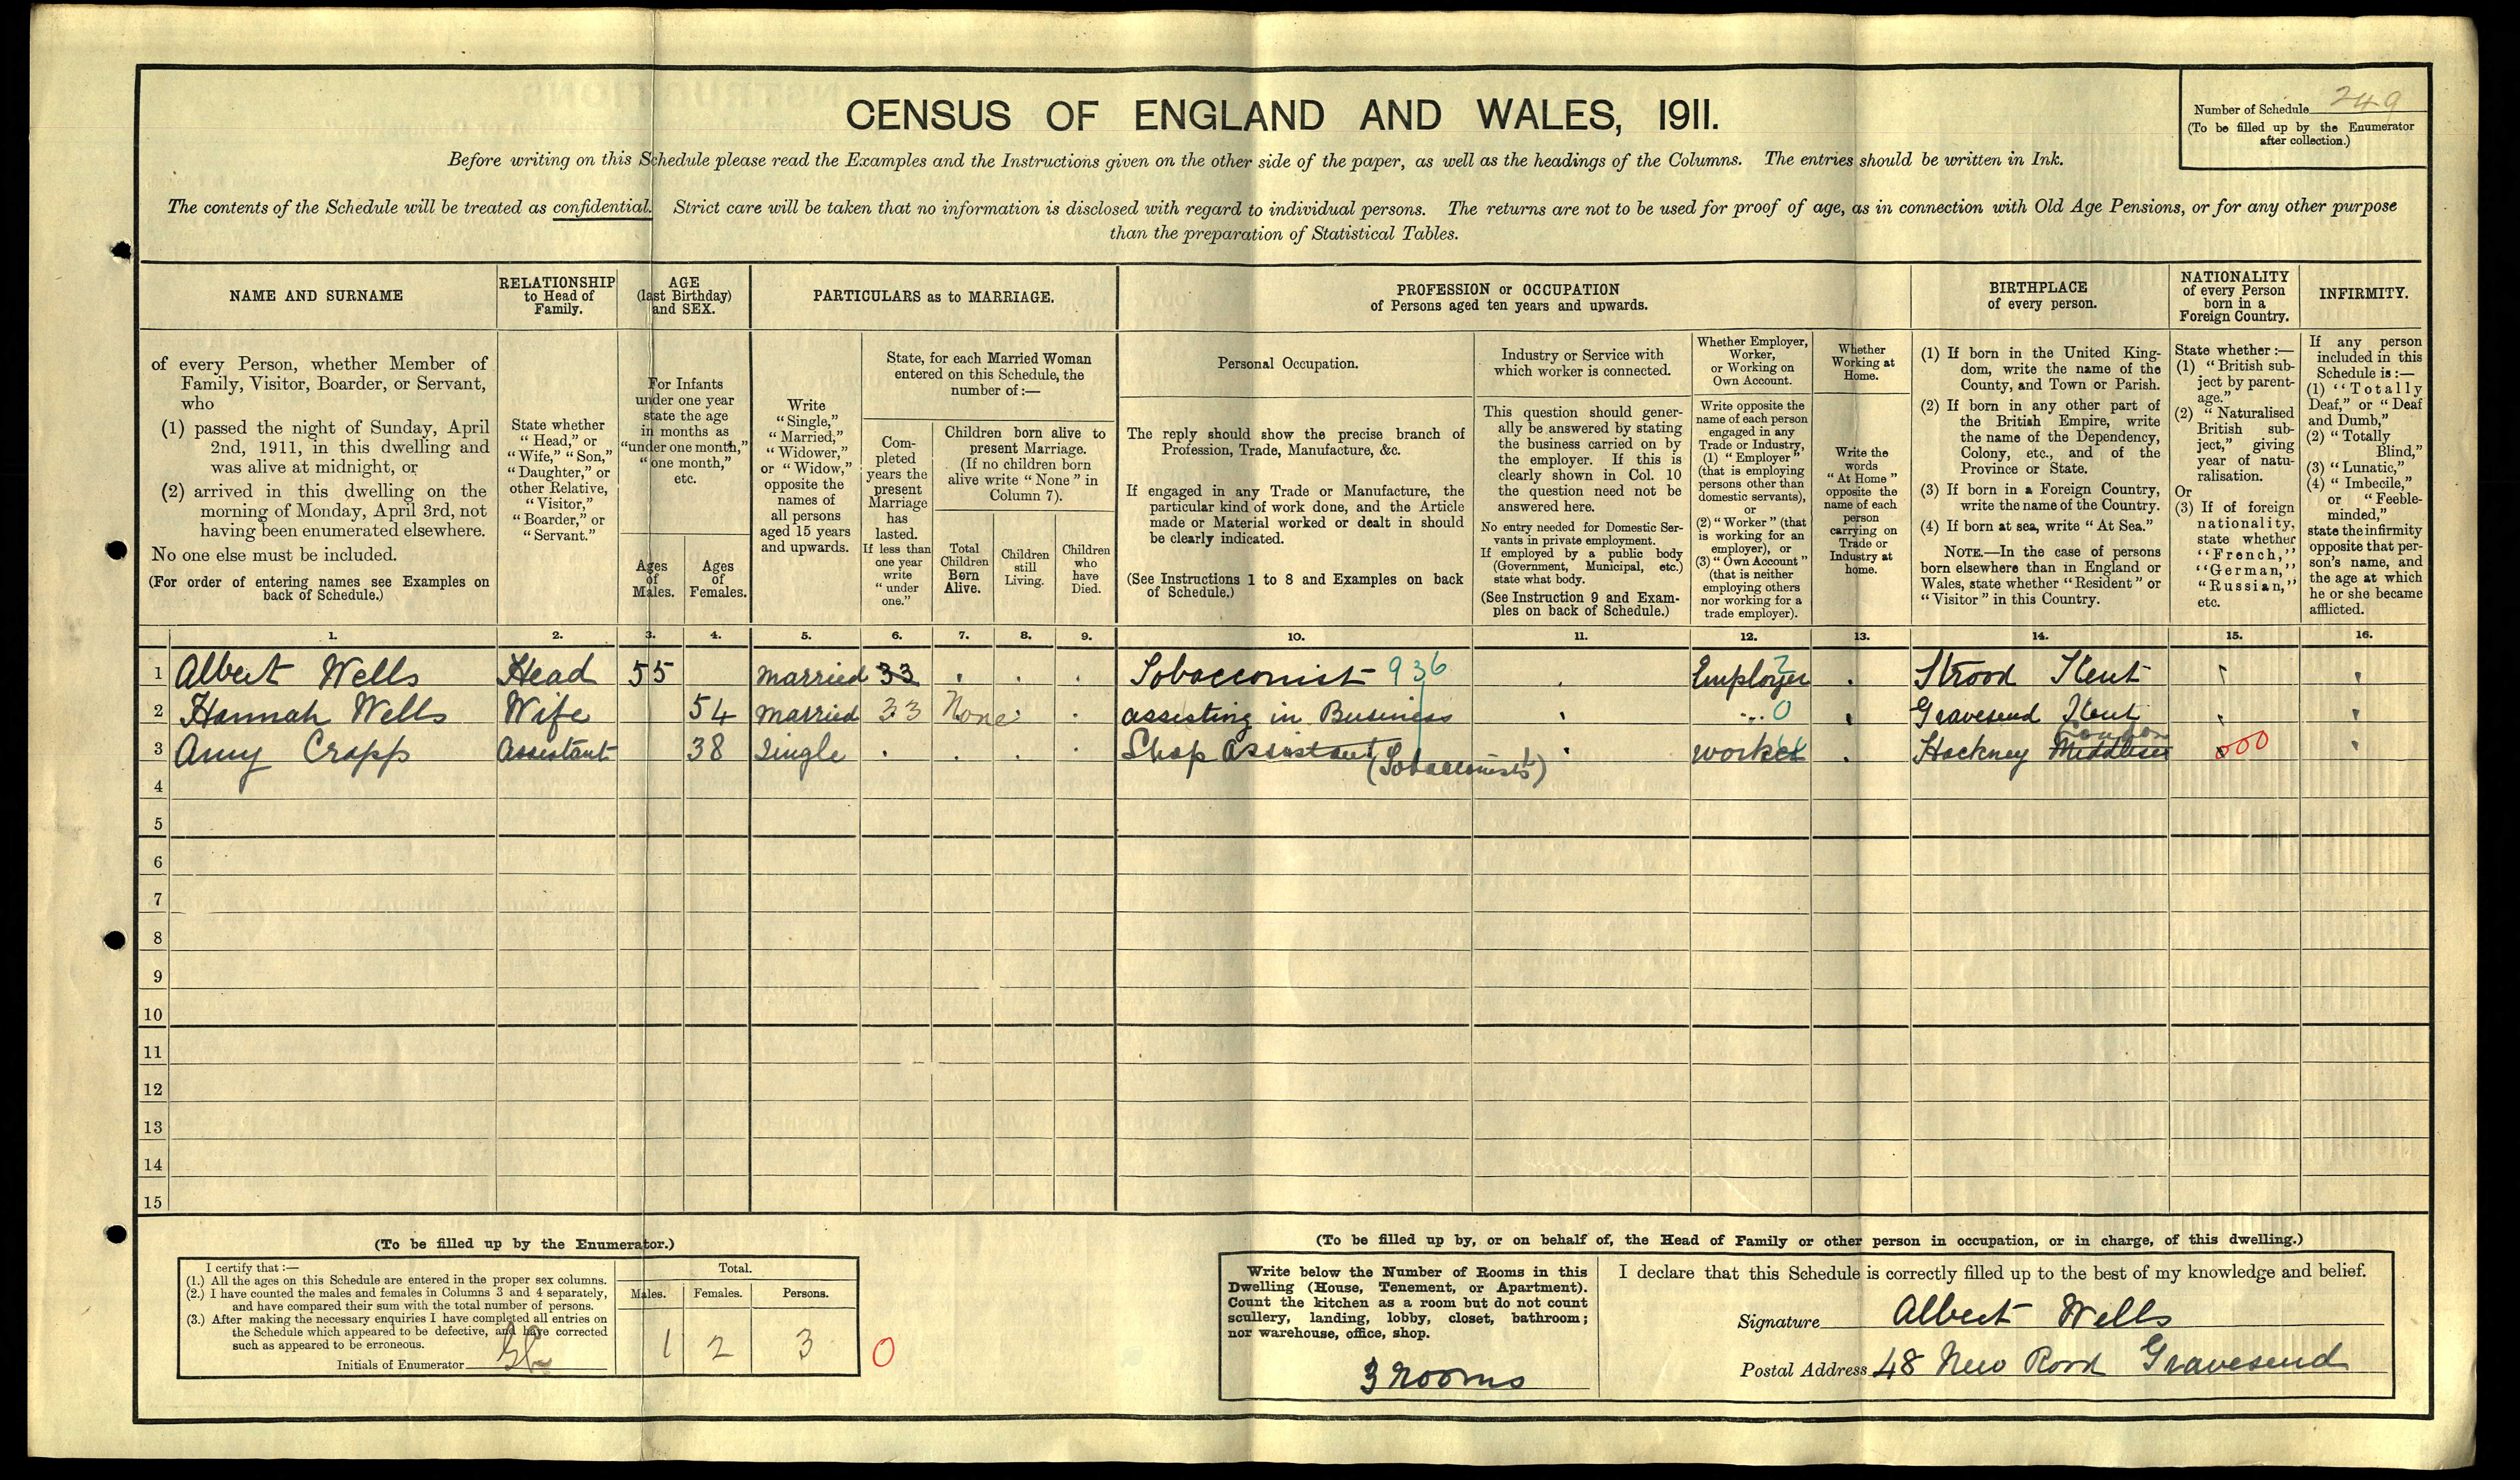 CENSUS OF ENGLAND AND WALES, 1911.
Number of Schedule 249
(To be filled up by the Enumerator
after collection.)
Before writing on this Schedule please read the Examples and the Instructions given on the other side of the paper, as well as the headings of the Columns. The entries should be written in Ink.
The contents of the Schedule will be treated as confidential. Strict care will be taken that no information is disclosed with regard to individual persons. The returns are not to be used for proof of age, as in connection with Old Age Pensions, or for any other purpose
than the preparation of Statistical Tables.
NAME AND SURNAME
of every Person, whether Member of
Family, Visitor, Boarder, or Servant,
who
(1) passed the night of Sunday, April
2nd, 1911, in this dwelling and
was alive at midnight, or
(2) arrived in this dwelling on the
morning of Monday, April 3rd, not
having been enumerated elsewhere.
No one else must be included.
(For order of entering names see Examples on
back of Schedule.)
RELATIONSHIP
to Head of
Family.
State whether
"Head," or
"Wife," "Son,"
"Daughter," or
other Relative,
"Visitor,"
"Boarder," or
"Servant."
AGE
(last Birthday)
and SEX.
For Infants
under one year
state the age
in months as
"under one month,"
"one month,"
etc.
Ages
of
Males.
Ages
of
Females.
PARTICULARS as to MARRIAGE.
Write
"Single,"
"Married,"
"Widower,"
or "Widow,"
opposite the
names of
all persons
aged 15 years
and upwards.
State, for each Married Woman
entered on this Schedule, the
number of:—
Com-
pleted
years the
present
Marriage
has
lasted.
If less than
one year
write
"under
one."
Children born alive to
present Marriage.
(If no children born
alive write "None" in
Column 7).
Total
Children
Born
Alive.
Children
still
Living.
Children
who
have
Died.
PROFESSION or OCCUPATION
of Persons aged ten years and upwards.
Personal Occupation.
The reply should show the precise branch of
Profession, Trade, Manufacture, &c.
If engaged in any Trade or Manufacture, the
particular kind of work done, and the Article
made or Material worked or dealt in should
be clearly indicated.
(See Instructions 1 to 8 and Examples on back
of Schedule.)
Industry or Service with
which worker is connected.
This question should gener-
ally be answered by stating
the business carried on by
the employer. If this is
clearly shown in Col. 10
the question need not be
answered here.
No entry needed for Domestic Ser-
vants in private employment.
If employed by a public body
(Government, Municipal, etc.)
state what body.
(See Instruction 9 and Exam-
ples on back of Schedule.)
Whether Employer,
Worker,
or Working on
Own Account.
Write opposite the
name of each person
engaged in any
Trade or Industry,
(1) "Employer"
(that is employing
persons other than
domestic servants),
or
(2) "Worker" (that
is working for an
employer), or
(3) "Own Account"
(that is neither
employing others
nor working for a
trade employer).
Whether
Working at
Home.
Write the
words
"At Home"
opposite the
name of each
person
carrying on
Trade or
Industry at
home.
BIRTHPLACE
of every person.
(1) If born in the United King-
dom, write the name of the
County, and Town or Parish.
(2) If born in any other part of
the British Empire, write
the name of the Dependency,
Colony, etc., and of the
Province or State.
(3) If born in a Foreign Country,
write the name of the Country.
(4) If born at sea, write "At Sea."
NOTE.—In the case of persons
born elsewhere than in England or
Wales, state whether "Resident" or
"Visitor" in this Country.
NATIONALITY
of every Person
born in a
Foreign Country.
State whether:—
(1) "British sub-
ject by parent-
age."
(2) "Naturalised
British sub-
ject," giving
year of natu-
ralisation.
Or
(3) If of foreign
nationality,
state whether
"French,"
"German,"
"Russian,"
etc.
INFIRMITY.
If any person
included in this
Schedule is:—
(1) "Totally
Deaf," or "Deaf
and Dumb,"
(2) "Totally
Blind,"
(3) "Lunatic,"
(4) "Imbecile,"
or "Feeble-
minded,"
state the infirmity
opposite that per-
son's name, and
the age at which
he or she became
afflicted.
1. 2. 3. 4. 5. 6. 7. 8. 9. 10. 11. 12. 13. 14. 15. 16.
1 Albert Wells Head 55 Married 33 Tobacconist 936 Employer Strood Kent
2 Hannah Wells Wife 54 Married 33 None assisting in Business 0 Gravesend Kent
3 Amy Cropp Assistant 38 Single Shop Assistant (Tobacconists) worker Hackney Middlesex London 000
4
5
6
7
8
9
10
11
12
13
14
15
(To be filled up by the Enumerator.)
I certify that:—
(1.) All the ages on this Schedule are entered in the proper sex columns.
(2.) I have counted the males and females in Columns 3 and 4 separately,
and have compared their sum with the total number of persons.
(3.) After making the necessary enquiries I have completed all entries on
the Schedule which appeared to be defective, and have corrected
such as appeared to be erroneous.
Initials of Enumerator
Total.
Males. Females. Persons.
1 2 3 0
(To be filled up by, or on behalf of, the Head of Family or other person in occupation, or in charge, of this dwelling.)
Write below the Number of Rooms in this
Dwelling (House, Tenement, or Apartment).
Count the kitchen as a room but do not count
scullery, landing, lobby, closet, bathroom;
nor warehouse, office, shop.
3 rooms
I declare that this Schedule is correctly filled up to the best of my knowledge and belief.
Signature Albert Wells
Postal Address 48 New Road Gravesend